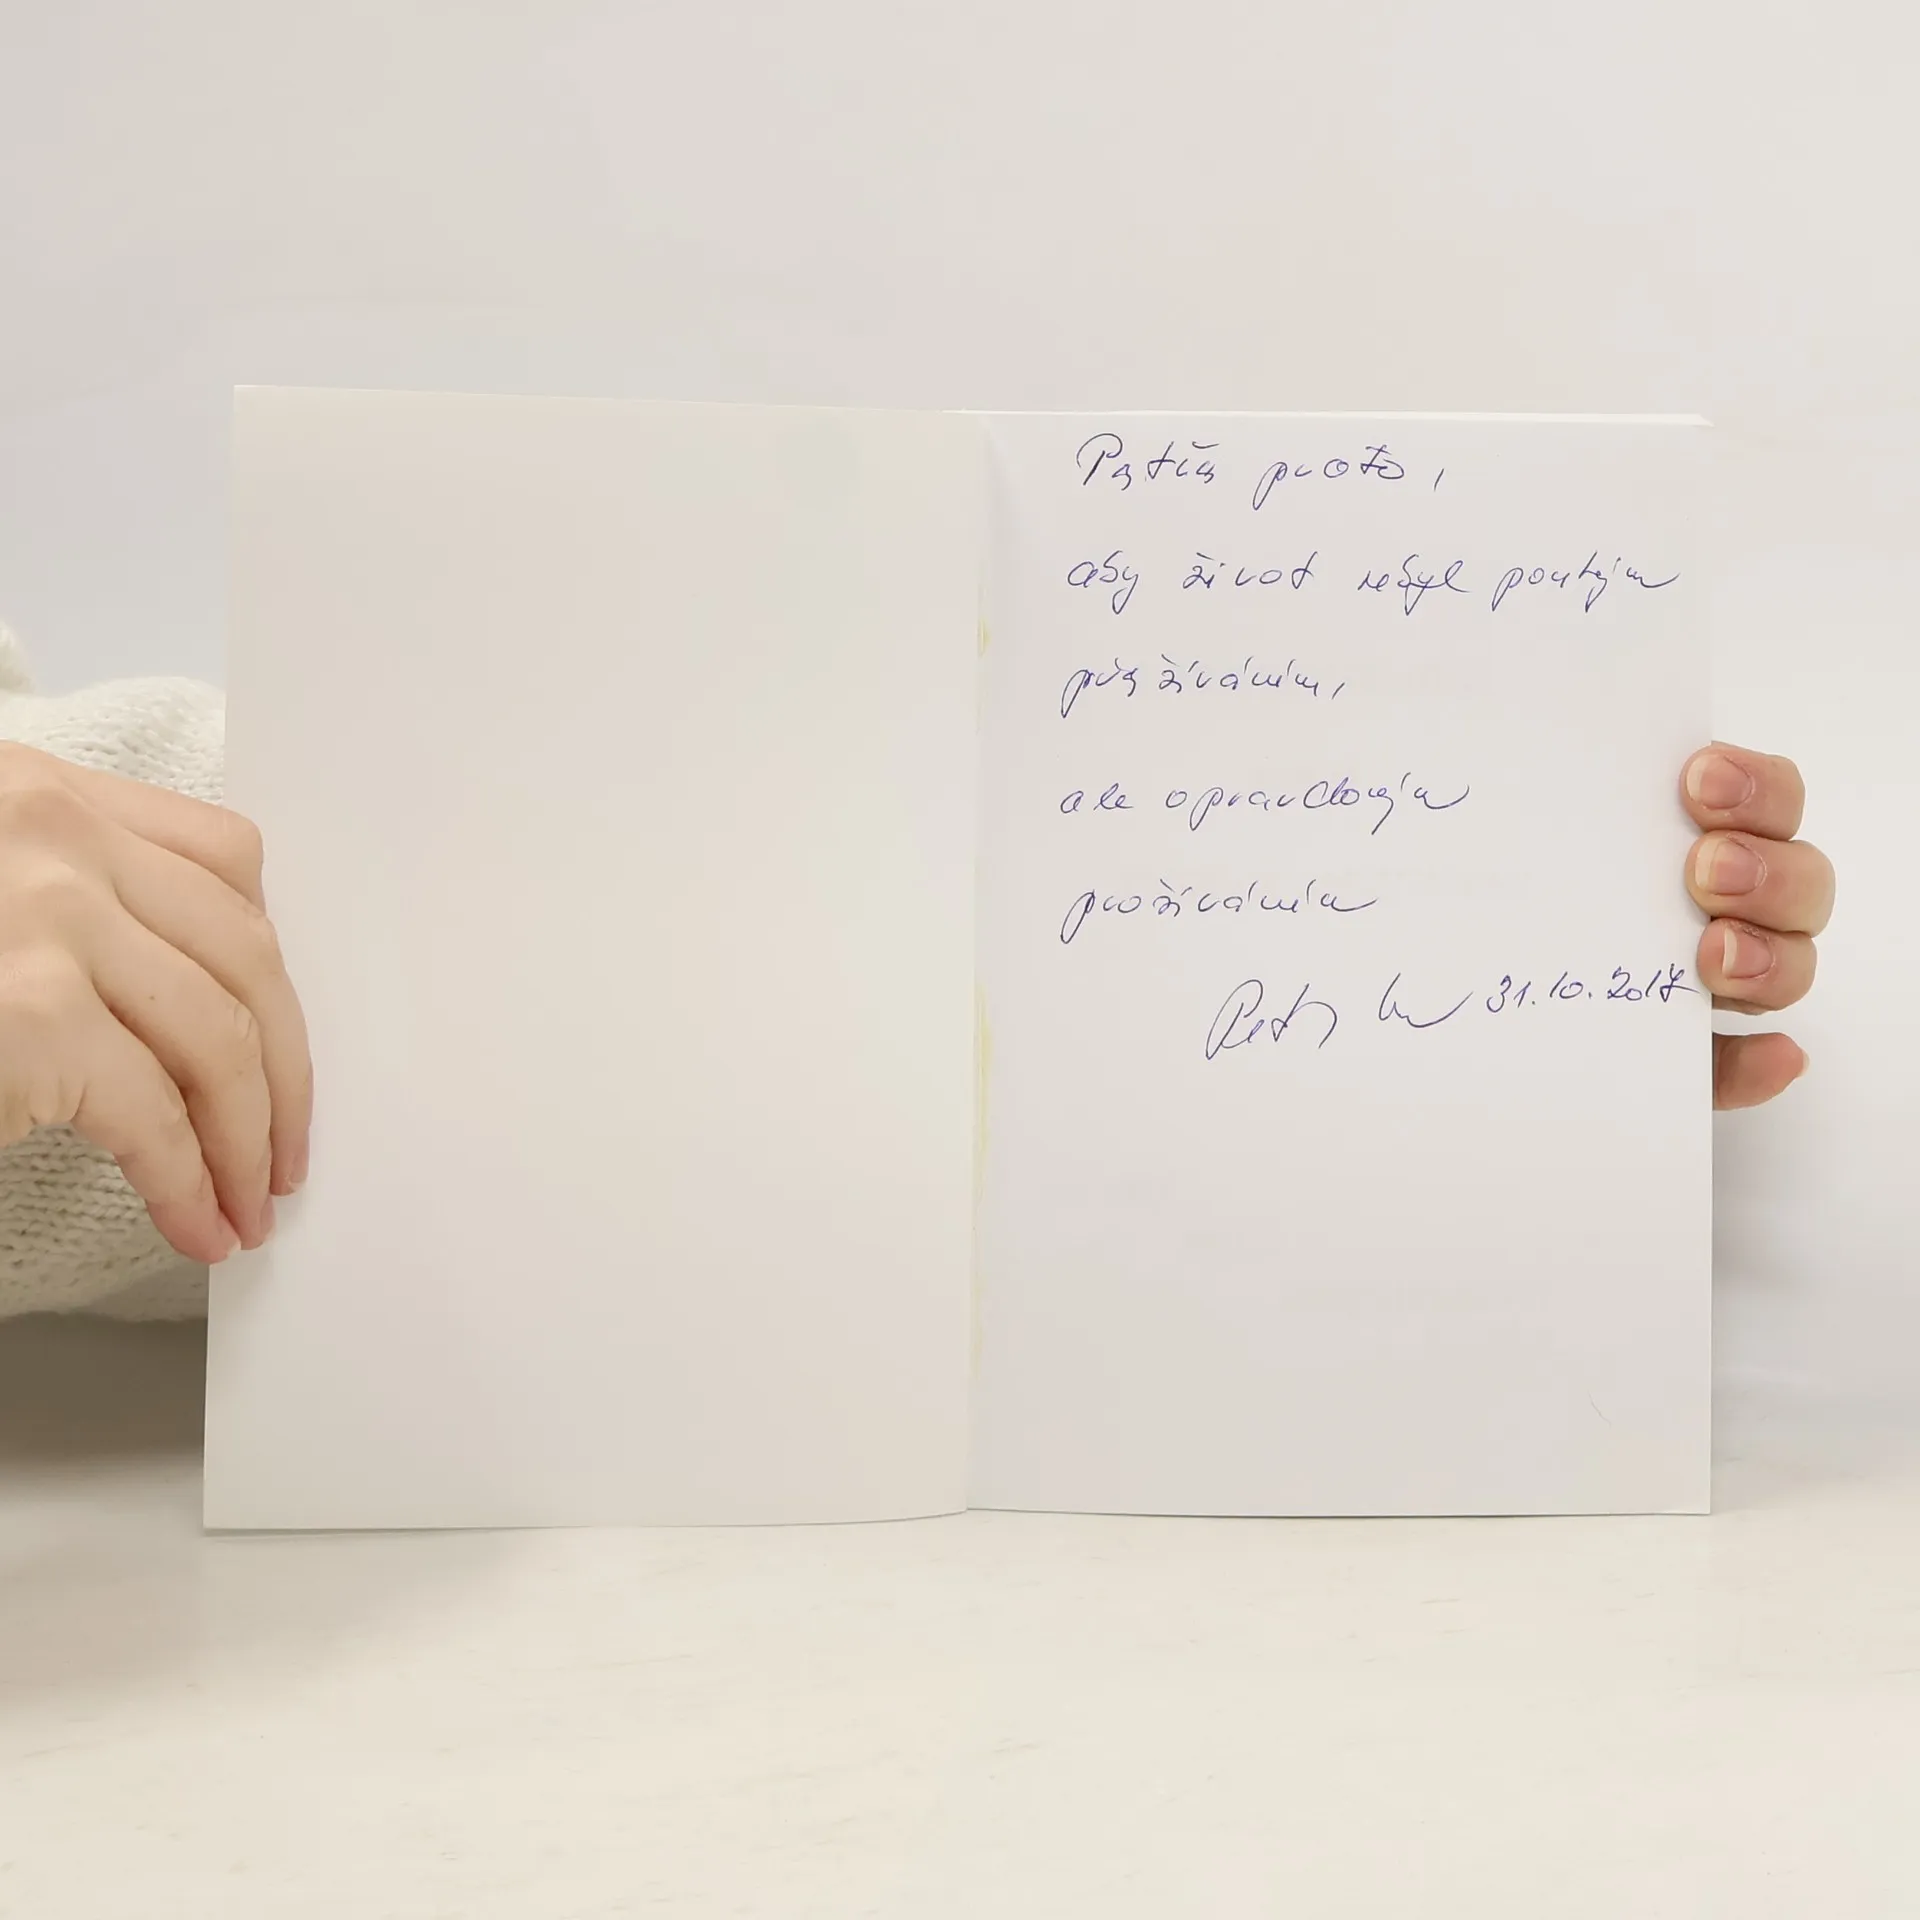 proto,
aby život nebyl pouhým
přežíváním,
ale opravdovým
prožíváním
31.10.2017